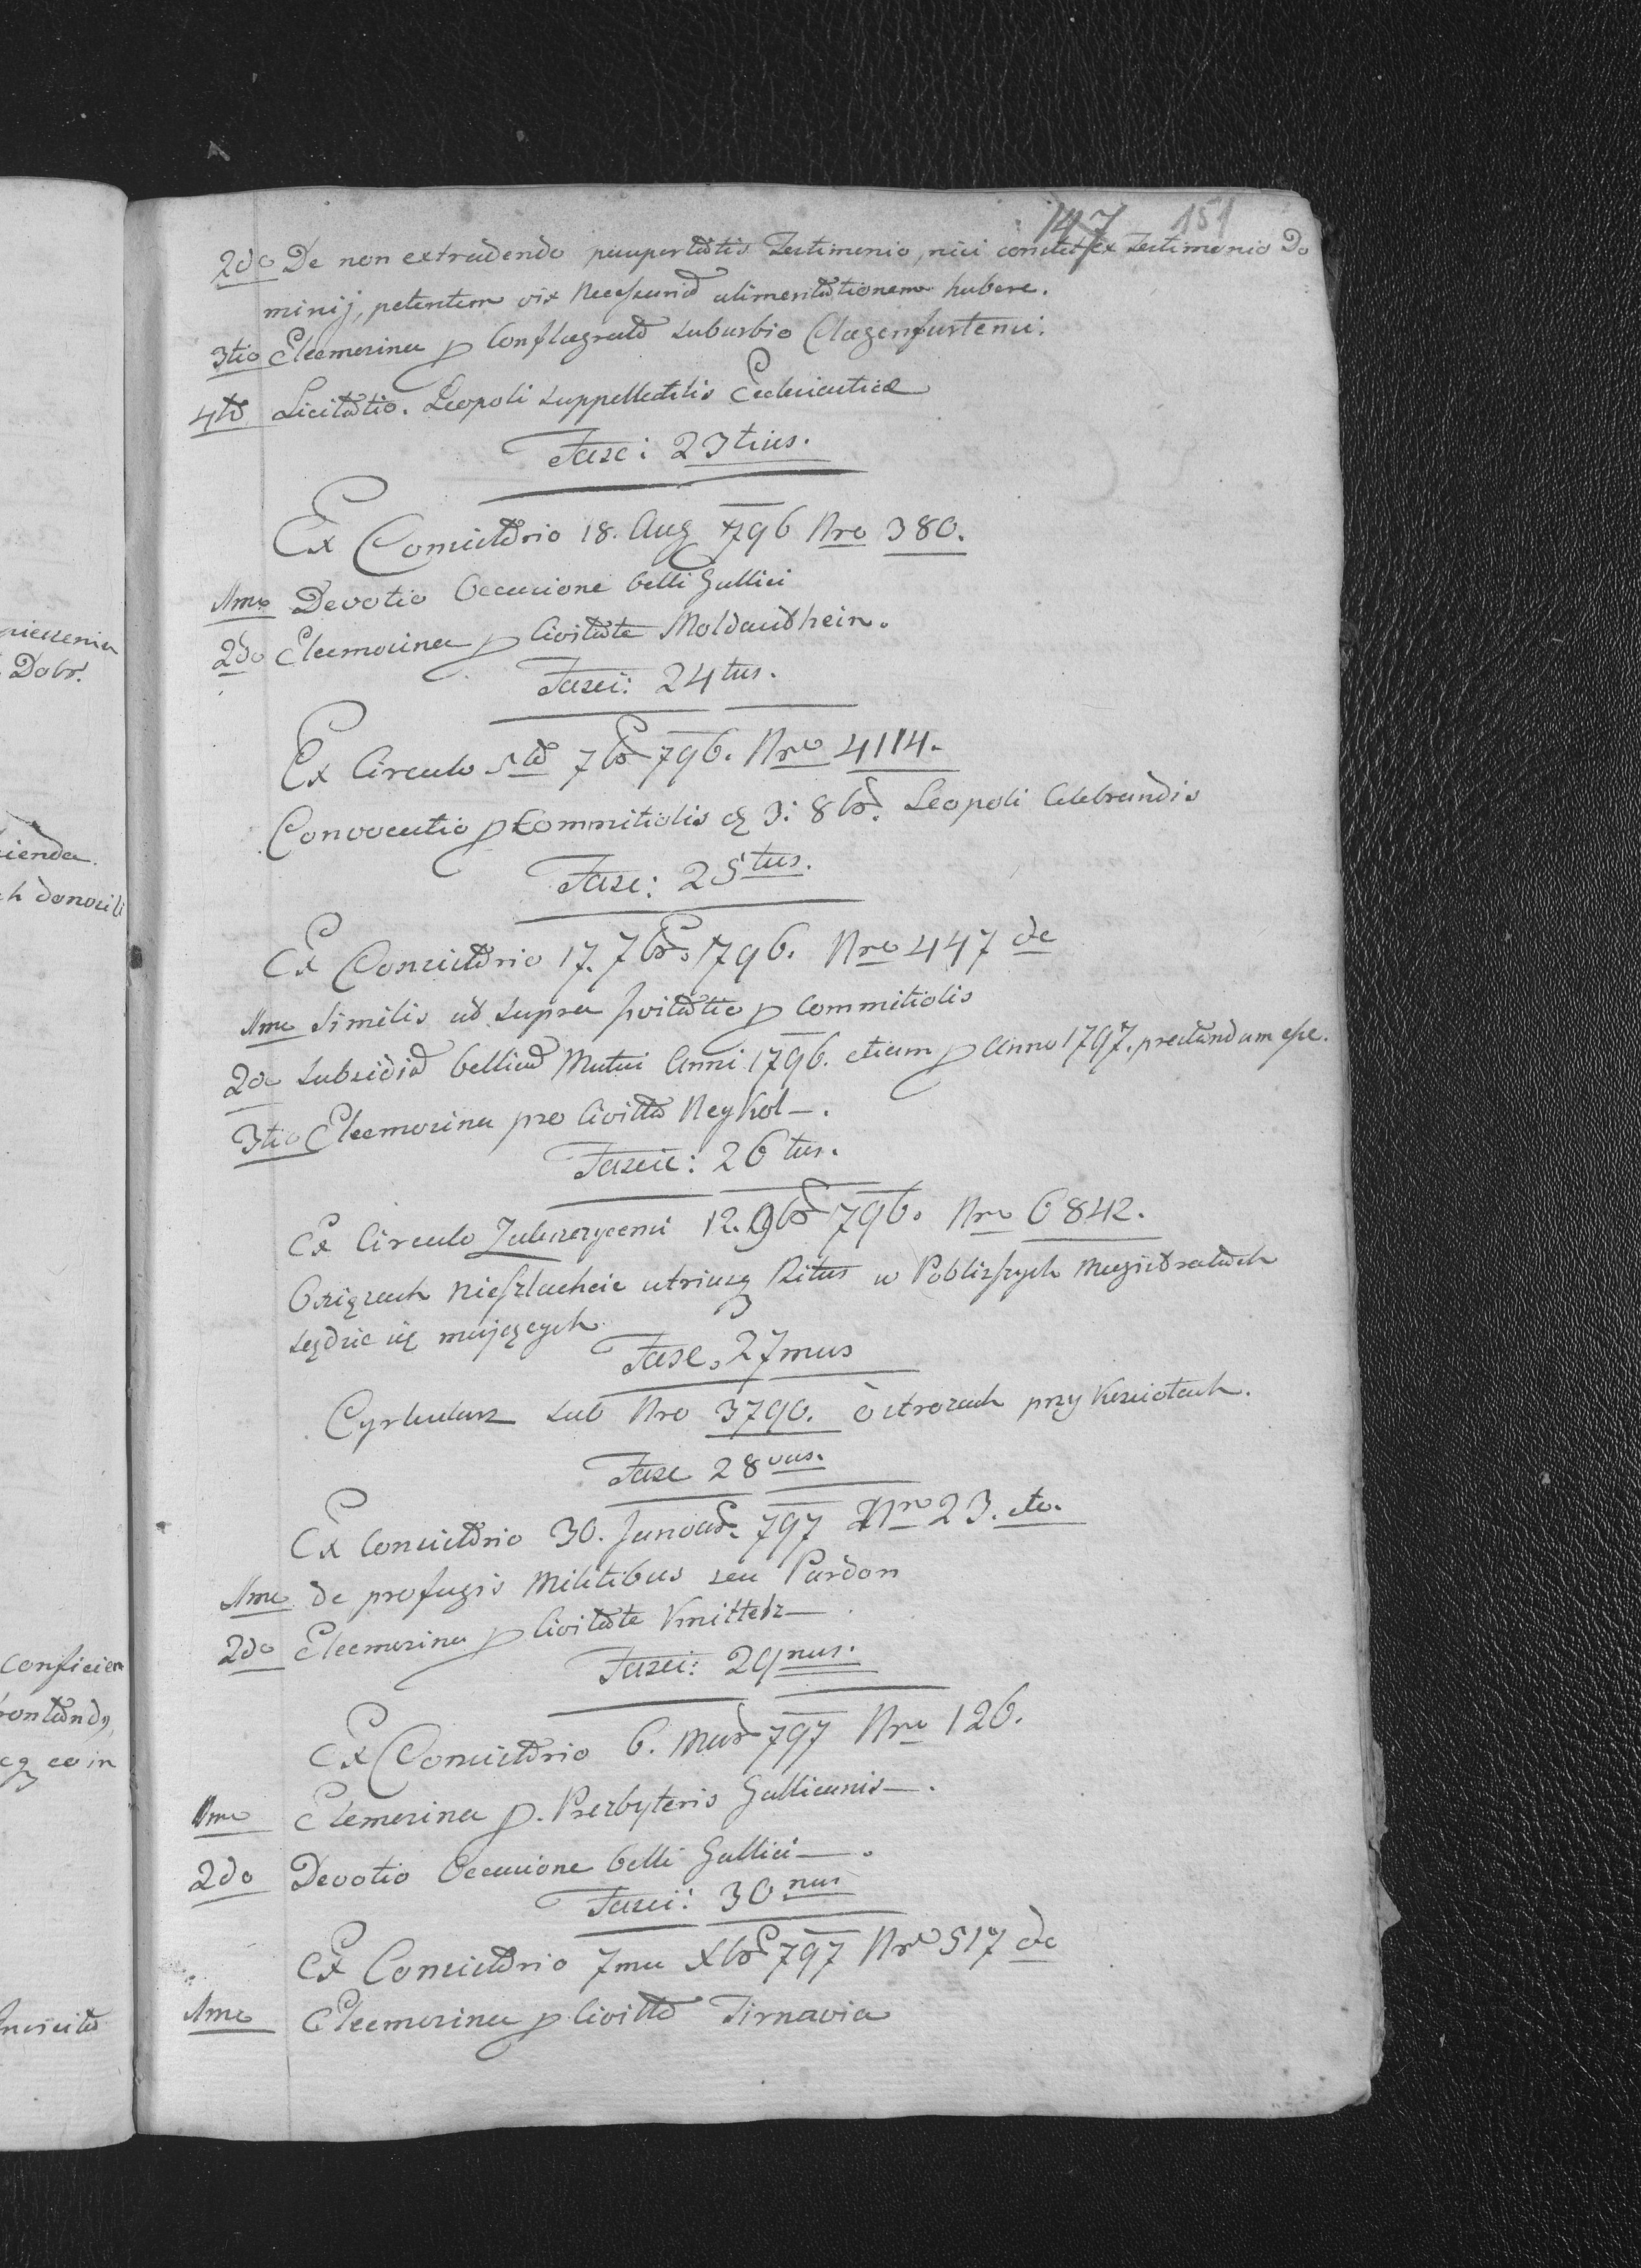 147 151
2do De non extradendo paupertatis Testimonio, nisi constet ex Testimonio Do
minij, petentem vix Necessariā alimentationem habere.
3tio Eleemosina p Conflagrato suburbio Clagenfurtensi.
4to Licitatio Leopoli suppellectilis Ecclesiasticæ
Fasc: 23tius.
Ex Consistorio 18. Aug 796 Nro 380.
1mo Devotio Occasione belli Gallici
2do Eleemosina p Civitate Moldauthein.
Fasci: 24tus.
Ex Circulo 5ta 7bris 796. Nro 4114.
Convocatio p Commitiolis 3: 8bris Leopoli Celebrandis
Fasc: 25tus.
Ex Consistorio 17. 7bris 1796. Nro 447 dc
1mo Similis ut supra Invitatio p Commitiolis
2do Subsidiū bellicū Mutui Anni 1796. etiam p Anno 1797. prestandum esse.
3tio Eleemosina pro Civitte Neykol.
Fascic: 26tus.
Ex Circulo Zaleszczycensi 12. 9bris 796. Nro 6842.
O xięzach nieszlachcie utriusq Ritus w Pobliższych Magistratach
sądzic się mających
Fasc. 27mus
Cyrkularz sub Nro 3790. o strozach przy Kosciołach.
Fasc 28vus.
Ex Consistorio 30. Januar. 797 Nro 23. etc.
1mo de profugis Militibus seu Pardon
2do Eleemosina p Civitate Knittelz
Fasci: 29nus.
Ex Consistorio 6. Mar 797 Nro 126.
1mo Elemosina p. Prezbyteris Gallicanis.
2do Devotio Occasione belli Gallici.
Fasci: 30nus
Ex Consistorio 7ma Xbris 797 Nro 517 dc
1mo Eleemosina p Civitte Tirnavia
nieszenia
Dobr.
cienda.
h donosili
Conficien
eq eo in